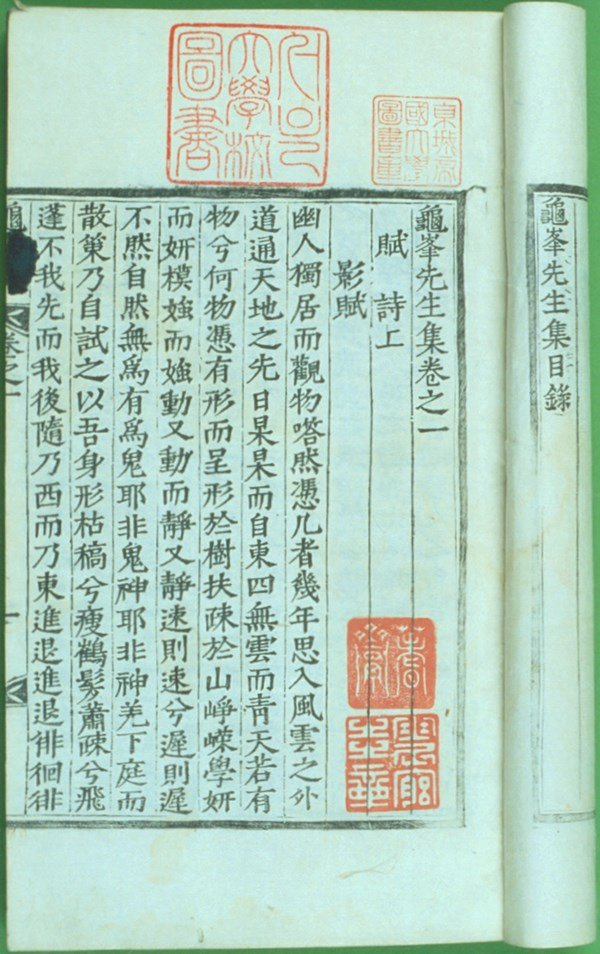 龜峯先生集目錄
龜峯先生集卷之一
賦 詩上
影賦
幽人獨居而觀物嗒然憑几者幾年思入風雲之外
道通天地之先日杲杲而自東四無雲而靑天若有
物兮何物憑有形而呈形於樹扶疎於山崢嶸學妍
而妍模媸而媸動又動而靜又靜速則速兮遲則遲
不然自然無爲有爲鬼耶非鬼神耶非神羌下庭而
散策乃自試之以吾身形枯稿兮瘦鶴髮蕭疎兮飛
蓬不我先而我後隨乃西而乃東進退進退徘徊徘
卷之一
一
大學校
圖書
東城帝
國大學
圖書章